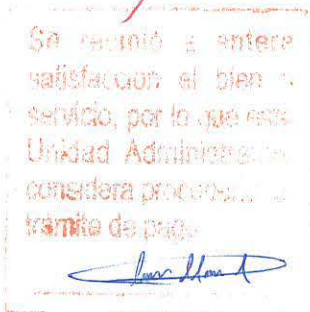 Se recibió a entera
satisfacción el bien
servicio, por lo que esta
Unidad Administra
considera proced
trámite de pago